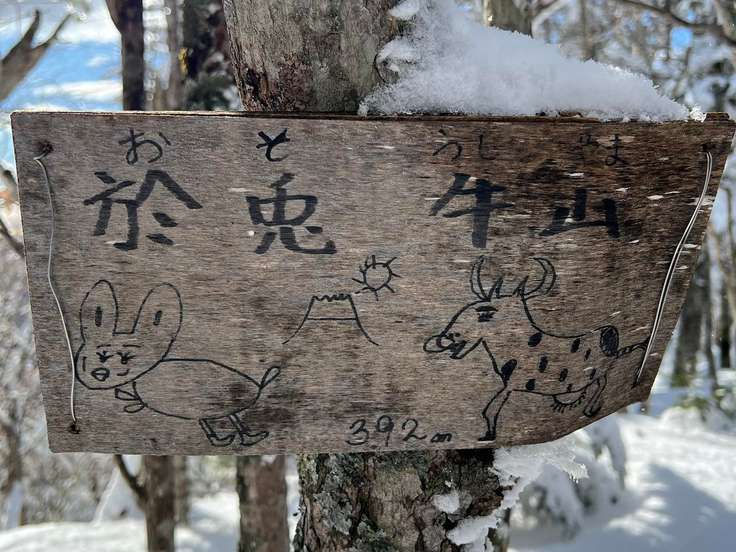 おそ うしやま
於兎 牛山
392m